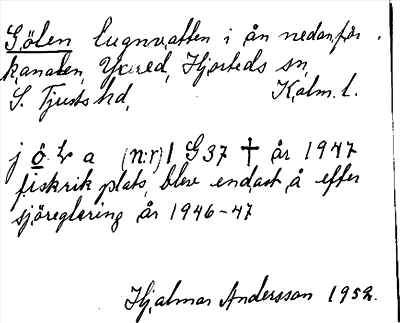 Gölen lugnvatten i ån nedanför
kanalen, Yxered, Hjorteds sn,
S. Tjusts hd, Kalm. l.
(n:r) 1 G37 † år 1947
fiskrik plats, blev endast å efter
sjöreglering år 1946-47
Hjalmar Andersson 1952.